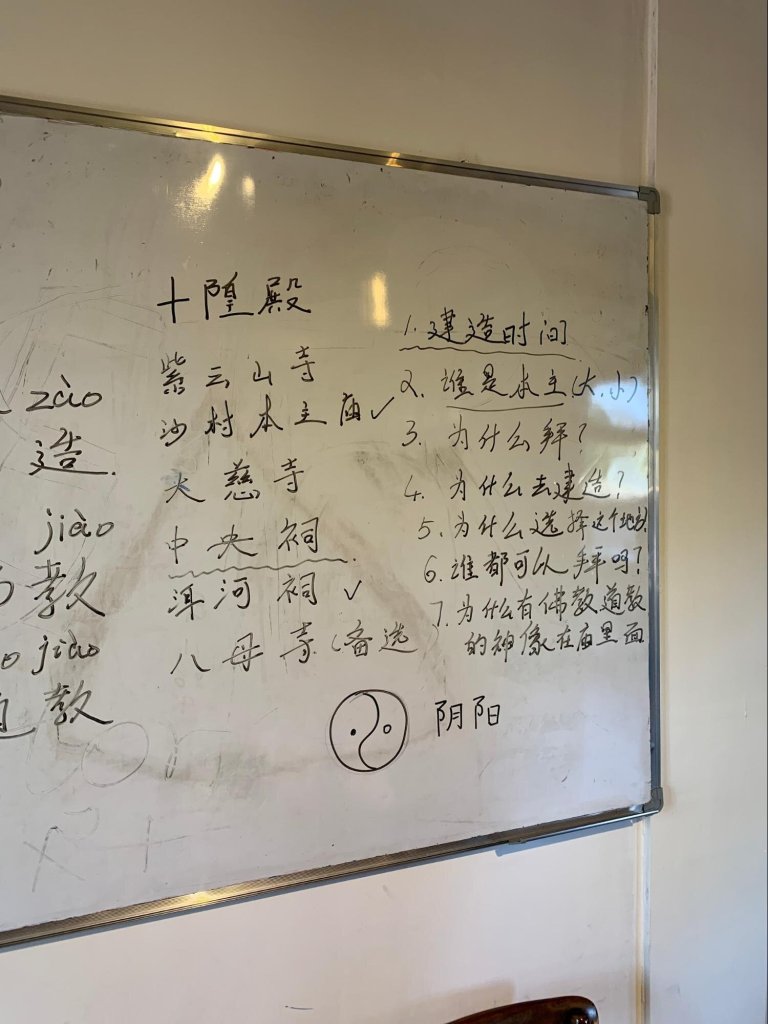 zào
造.
jiào
教
jiào
教
十隍殿
紫云山寺
沙村本主庙✓
大慈寺
中央祠
洱河祠 ✓
八母寺(备选
1. 建造时间
2. 谁是本主(大.小)
3. 为什么拜?
4. 为什么去建造?
5. 为什么选择这个地方?
6. 谁都可以拜吗?
7. 为什么有佛教道教
的神像在庙里面
阴阳